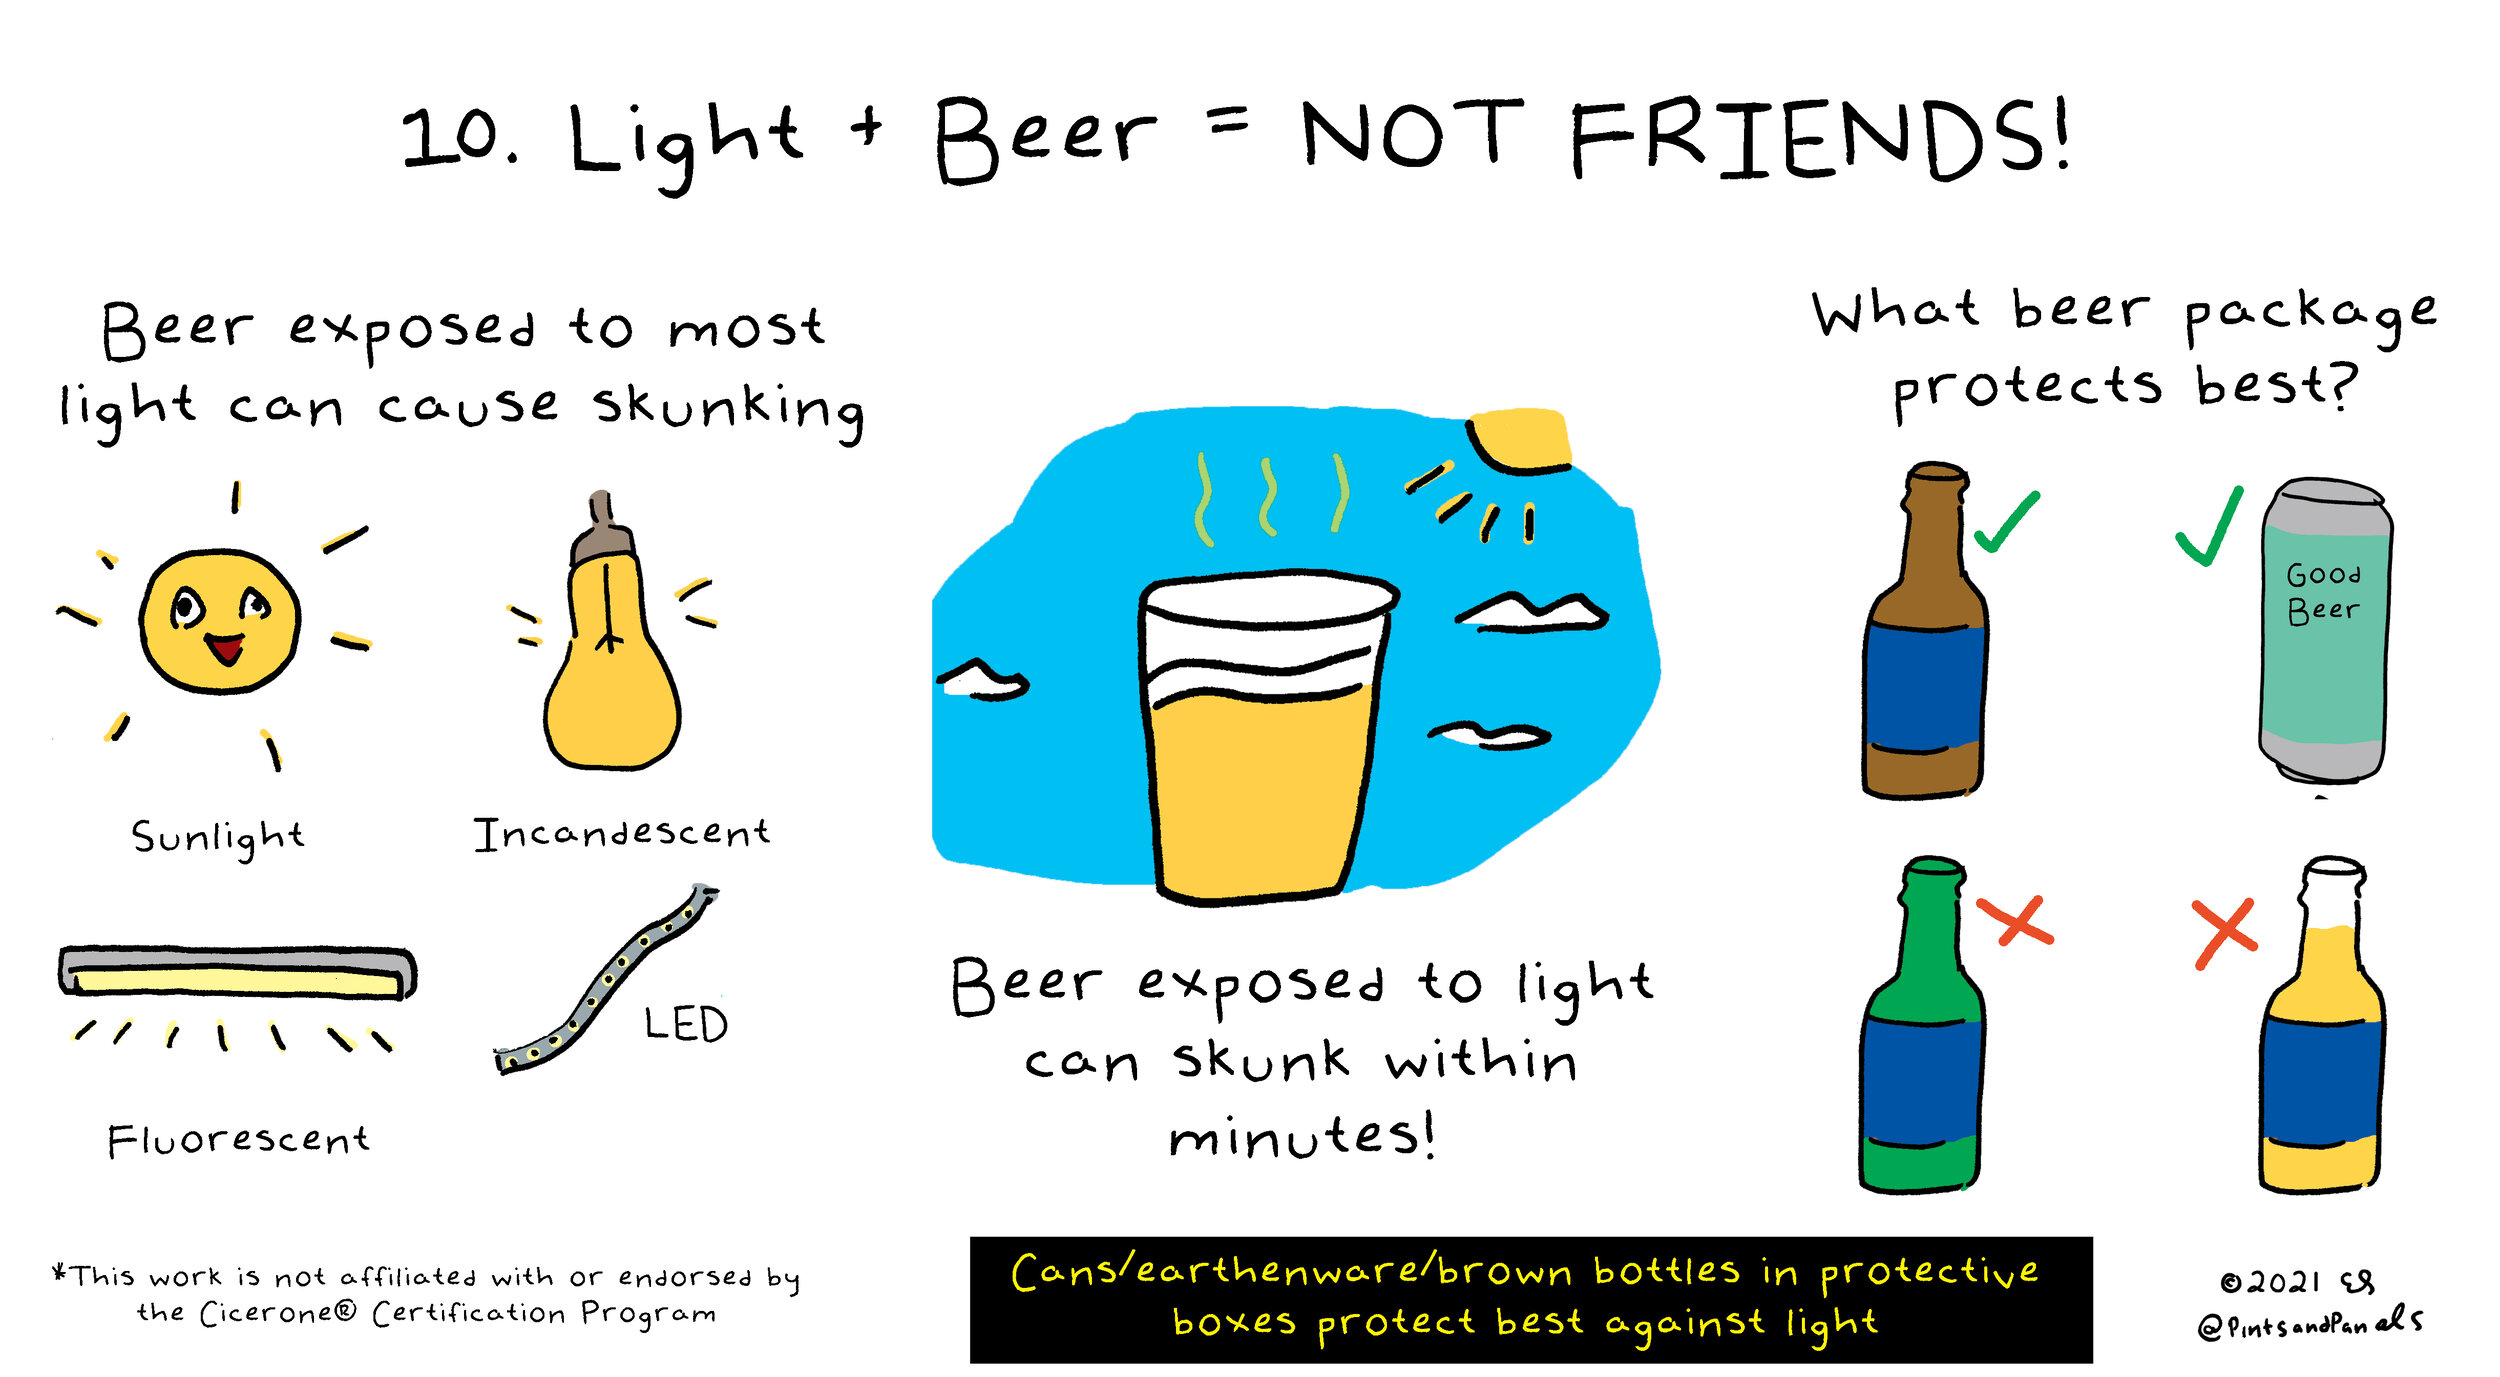 10. Light + Beer = NOT FRIENDS!
Beer exposed to most
light can cause skunking
Sunlight
Incandescent
Fluorescent
LED
Beer exposed to light
can skunk within
minutes!
What beer package
protects best?
Good
Beer
*This work is not affiliated with or endorsed by
the Cicerone® Certification Program
Cans/earthenware/brown bottles in protective
boxes protect best against light
©2021 ES
@PintsandPanels